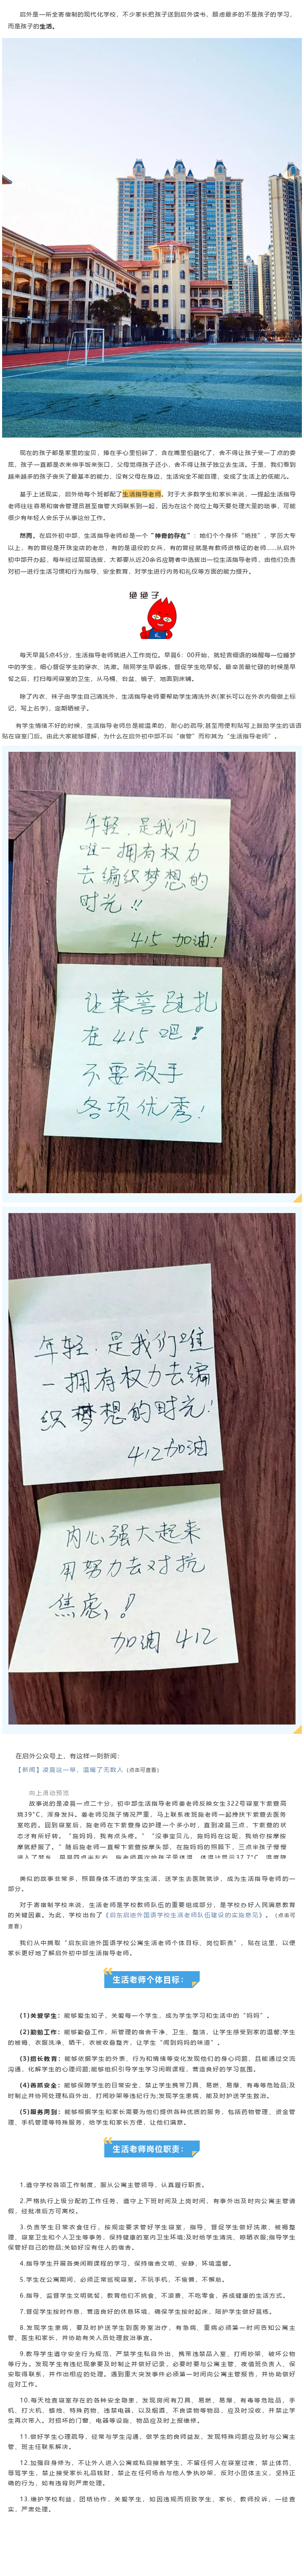 启外是一所全寄宿制的现代化学校，不少家长把孩子送到启外读书，顾虑最多的不是孩子的学习，
而是孩子的生活。
现在的孩子都是家里的宝贝，捧在手心里怕碎了，含在嘴里怕融化了，舍不得让孩子受一丁点的委
屈，孩子一直都是衣来伸手饭来张口，父母觉得孩子还小，舍不得让孩子独立去生活。于是，我们看到
越来越多的孩子丧失了最基本的能力，没有父母在身边，生活完全不能自理，变成了生活上的低能儿。
基于上述现实，启外给每个班都配了生活指导老师。对于大多数学生和家长来说，一提起生活指导
老师往往容易和宿舍管理员甚至宿管大妈联系到一起，因为在这个岗位上每天要处理大量的琐事，可能
很少有年轻人会乐于从事这份工作。
然而，在启外初中部，生活指导老师却是一个“神奇的存在”：她们个个身怀“绝技”，学历大专
以上，有的曾经是开珠宝店的老总，有的是退役的女兵，有的曾经就是有教师资格证的老师……从启外
初中部开办起，每年经过层层选拔，大都要从近20余名应聘者中选拔出一位生活指导老师，由他们负责
对初一进行生活习惯和行为指导，安全教育，对学生进行内务和礼仪等方面的能力提升。
绝绝子
每天早晨5点45分，生活指导老师就进入工作岗位。早晨6：00开始，就轻言细语的唤醒每一位睡梦
中的学生，细心督促学生的穿衣、洗漱。陪同学生早锻炼，督促学生吃早餐。最辛苦最忙碌的时候是早
餐之后，打扫每间寝室的卫生，从马桶、台盆、镜子、地面到床铺。
除了内衣、袜子由学生自己清洗外，生活指导老师要帮助学生清洗外衣(家长可以在外衣内侧做上标
记，写上名字)，定期晒被子。
有学生情绪不好的时候，生活指导老师总是能温柔的，耐心的疏导;甚至用便利贴写上鼓励学生的话语
贴在寝室门后。由此大家能够理解，为什么在启外初中部不叫“宿管”而称其为“生活指导老师”。
年轻，是我们
唯一拥有权力
去编织梦想的
时光!!
415 加油!
让荣誉驻扎
在415吧!
不要放手
各项优秀!
年轻，是我们唯
一拥有权力去编
织梦想的时光!
412加油
内心强大起来
用努力去对抗
焦虑!
加油 412
在启外公众号上，有这样一则新闻：
【新闻】凌晨这一举，温暖了无数人（点击可查看）
向上滑动预览
故事说的是凌晨一点二十分，初中部生活老师姜老师反映女生322号寝室卞紫萱高
烧39℃，浑身发抖。姜老师见孩子情况严重，马上联系夜班施老师一起搀扶卞紫萱去医务
室吃药。回到寝室后，施老师在卞紫萱身边护理一个多小时，直到凌晨三点，卞紫萱的状
态才有所好转。“施妈妈，我有点头疼。”“没事宝贝儿，施妈妈在这呢，我给你按摩按
摩就舒服了。”随后施老师一直帮卞紫萱按摩头部，在施妈妈的照顾下，三点半孩子慢慢
类似的故事非常多，照顾身体不适的学生生活、送学生去医院就诊，成为生活指导老师的一
部分。
对于寄宿制学校来说，生活老师是学校教师队伍的重要组成部分，是学校办好人民满意教育
的关键因素。为此，学校出台了《启东启迪外国语学校生活老师队伍建设的实施意见》。（点击可
查看）
我们从中摘取“启东启迪外国语学校公寓生活老师个体目标、岗位职责”，贴在这里，以便
家长更好地了解启外初中部生活指导老师。
生活老师个体目标：
(1)关爱学生：能够爱生如子，关爱每一个学生，成为学生学习和生活中的“妈妈”。
(2)勤勉工作：能够勤奋工作，所管理的宿舍干净、卫生、整洁，让学生感受到家的温馨;学生
的被褥、衣服洗净、晒干，衣被收叠整齐，让学生“闻到妈妈的味道”。
(3)担长教育：能够依据学生的外表、行为和情绪等变化发现他们的身心问题，且能通过交流
沟通，化解学生的心理问题;能够组织引导学生学习闲暇课程，营造良好的学习氛围。
(4)善抓安全：能够保障学生的日常安全，禁止学生携带刀具、易燃、易爆、有毒等危险品;及
时制止并协同处理私自外出、打闹吵架等违纪行为;发现学生患病，能及时护送学生就治。
(5)服务周到：能够根据学生和家长需要为他们提供各种优质的服务，包括药物管理、资金管
理、手机管理等特殊服务，给学生和家长方便，让他们满意。
生活老师岗位职责：
1.遵守学校各项工作制度，服从公寓主管领导，认真履行职责。
2.严格执行上级分配的工作任务，遵守上下班时间及上岗时间，有事外出及时向公寓主管请
假，经批准后方可离校。
3.负责学生日常衣食住行，按规定要求管好学生寝室，指导、督促学生做好洗漱、被褥整
理、寝室卫生和个人卫生等事务，保持健康的室内卫生环境;及时给学生清洗、晾晒衣服;指导学生
保管好自己的物品;关勤好没有住人的宿舍。
4.指导学生开展各类闲暇课程的学习，保持宿舍文明、安静，环境温馨。
5.学生在公寓期间，必须正常巡视寝室。不玩手机，不偷懒，不懈怠。
6.指导、监督学生文明就餐，教育他们不挑食，不浪费，不吃零食，养成健康的生活方式。
7.督促学生按时作息，营造良好的休息环境，确保学生按时起床，陪护学生做好晨练。
8.发现学生患病，要及时护送学生到医务室治疗，有急病、重病必须第一时间告知公寓主
管、医生和家长，并协助有关人员处理救治事宜。
9.教导学生遵守安全行为规范，严禁学生私自外出、携带违禁品入室，打闹吵架，破坏公物
等行为。发现学生有违纪现象要及时制止并做好记录，必要时要与公寓主管、夜值班负责人、保
安取得联系，并作出相应的处理。遇到重大突发事件必须第一时间向公寓主管报告，并协助做好
应对工作。
10.每天检查寝室存在的各种安全隐患，发现房间有刀具、易燃、易爆、有毒等危险品，手
机、打火机、蜡烛、特殊药物、违禁电器，以及烟酒、不良读物等物品，应及时没收，并禁止学
生再次带入。对损坏的门窗、电器等设施、物品应及时上报维修。
11.做好学生心理疏导，经常与学生沟通，做学生的良师益友，发现特殊问题应及时与公寓主
管、班主任联系解决。
12.加强自身修为，不让外人进入公寓或私自接触学生，不留任何人在寝室过夜，禁止体罚、
辱骂学生，禁止接受家长礼品钱财，禁止在任何场合与他人争执吵架，反对小团体主义，坚持正
确的行为，如有违背则严肃处理。
13.维护学校利益，团结协作，关爱学生，如因违规而招致学生，家长、教师投诉，一经查
实，严肃处理。